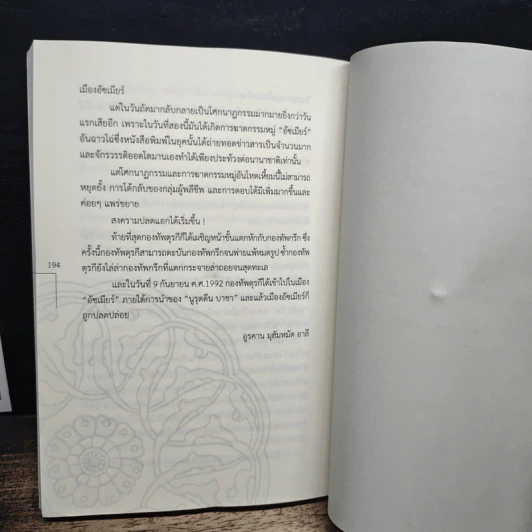 เมืองอัซเมียร์
แต่ในวันถัดมากลับกลายเป็นโศกนาฏกรรมมากมายยิ่งกว่าวัน
แรกเสียอีก เพราะในวันที่สองนี้มันได้เกิดการฆาตกรรมหมู่ "อัซเมียร์"
อันฉาวโฉ่ซึ่งหนังสือพิมพ์ในยุคนั้นได้ถ่ายทอดข่าวสารเป็นจำนวนมาก
และจักรวรรดิออตโตมานเองทำได้เพียงประท้วงต่อนานาชาติเท่านั้น
แต่โศกนาฏกรรมและการฆาตกรรมหมู่อันโหดเหี้ยมนี้ไม่สามารถ
หยุดยั้ง การโต้กลับของกลุ่มผู้พลีชีพ และการตอบโต้มีเพิ่มมากขึ้นและ
ค่อยๆ แพร่ขยาย
สงครามปลดแอกได้เริ่มขึ้น !
ท้ายที่สุดกองทัพตุรกีก็ได้เผชิญหน้าขั้นแตกหักกับกองทัพกรีก ซึ่ง
ครั้งนี้กองทัพตุรกีสามารถตะบันกองทัพกรีกจนพ่ายแพ้หมดรูป ซ้ำกองทัพ
ตุรกียังไล่ล่ากองทัพกรีกที่แตกกระจายล่าถอยจนสุดทะเล
194
และในวันที่ 9 กันยายน ค.ศ.1992 กองทัพตุรกีได้เข้าไปในเมือง
"อัซเมียร์" ภายใต้การนำของ "นูรุดดีน บาชา" และแล้วเมืองอัซเมียร์ก็
ถูกปลดปล่อย
อูรคาน มุฮัมหมัด อาลี